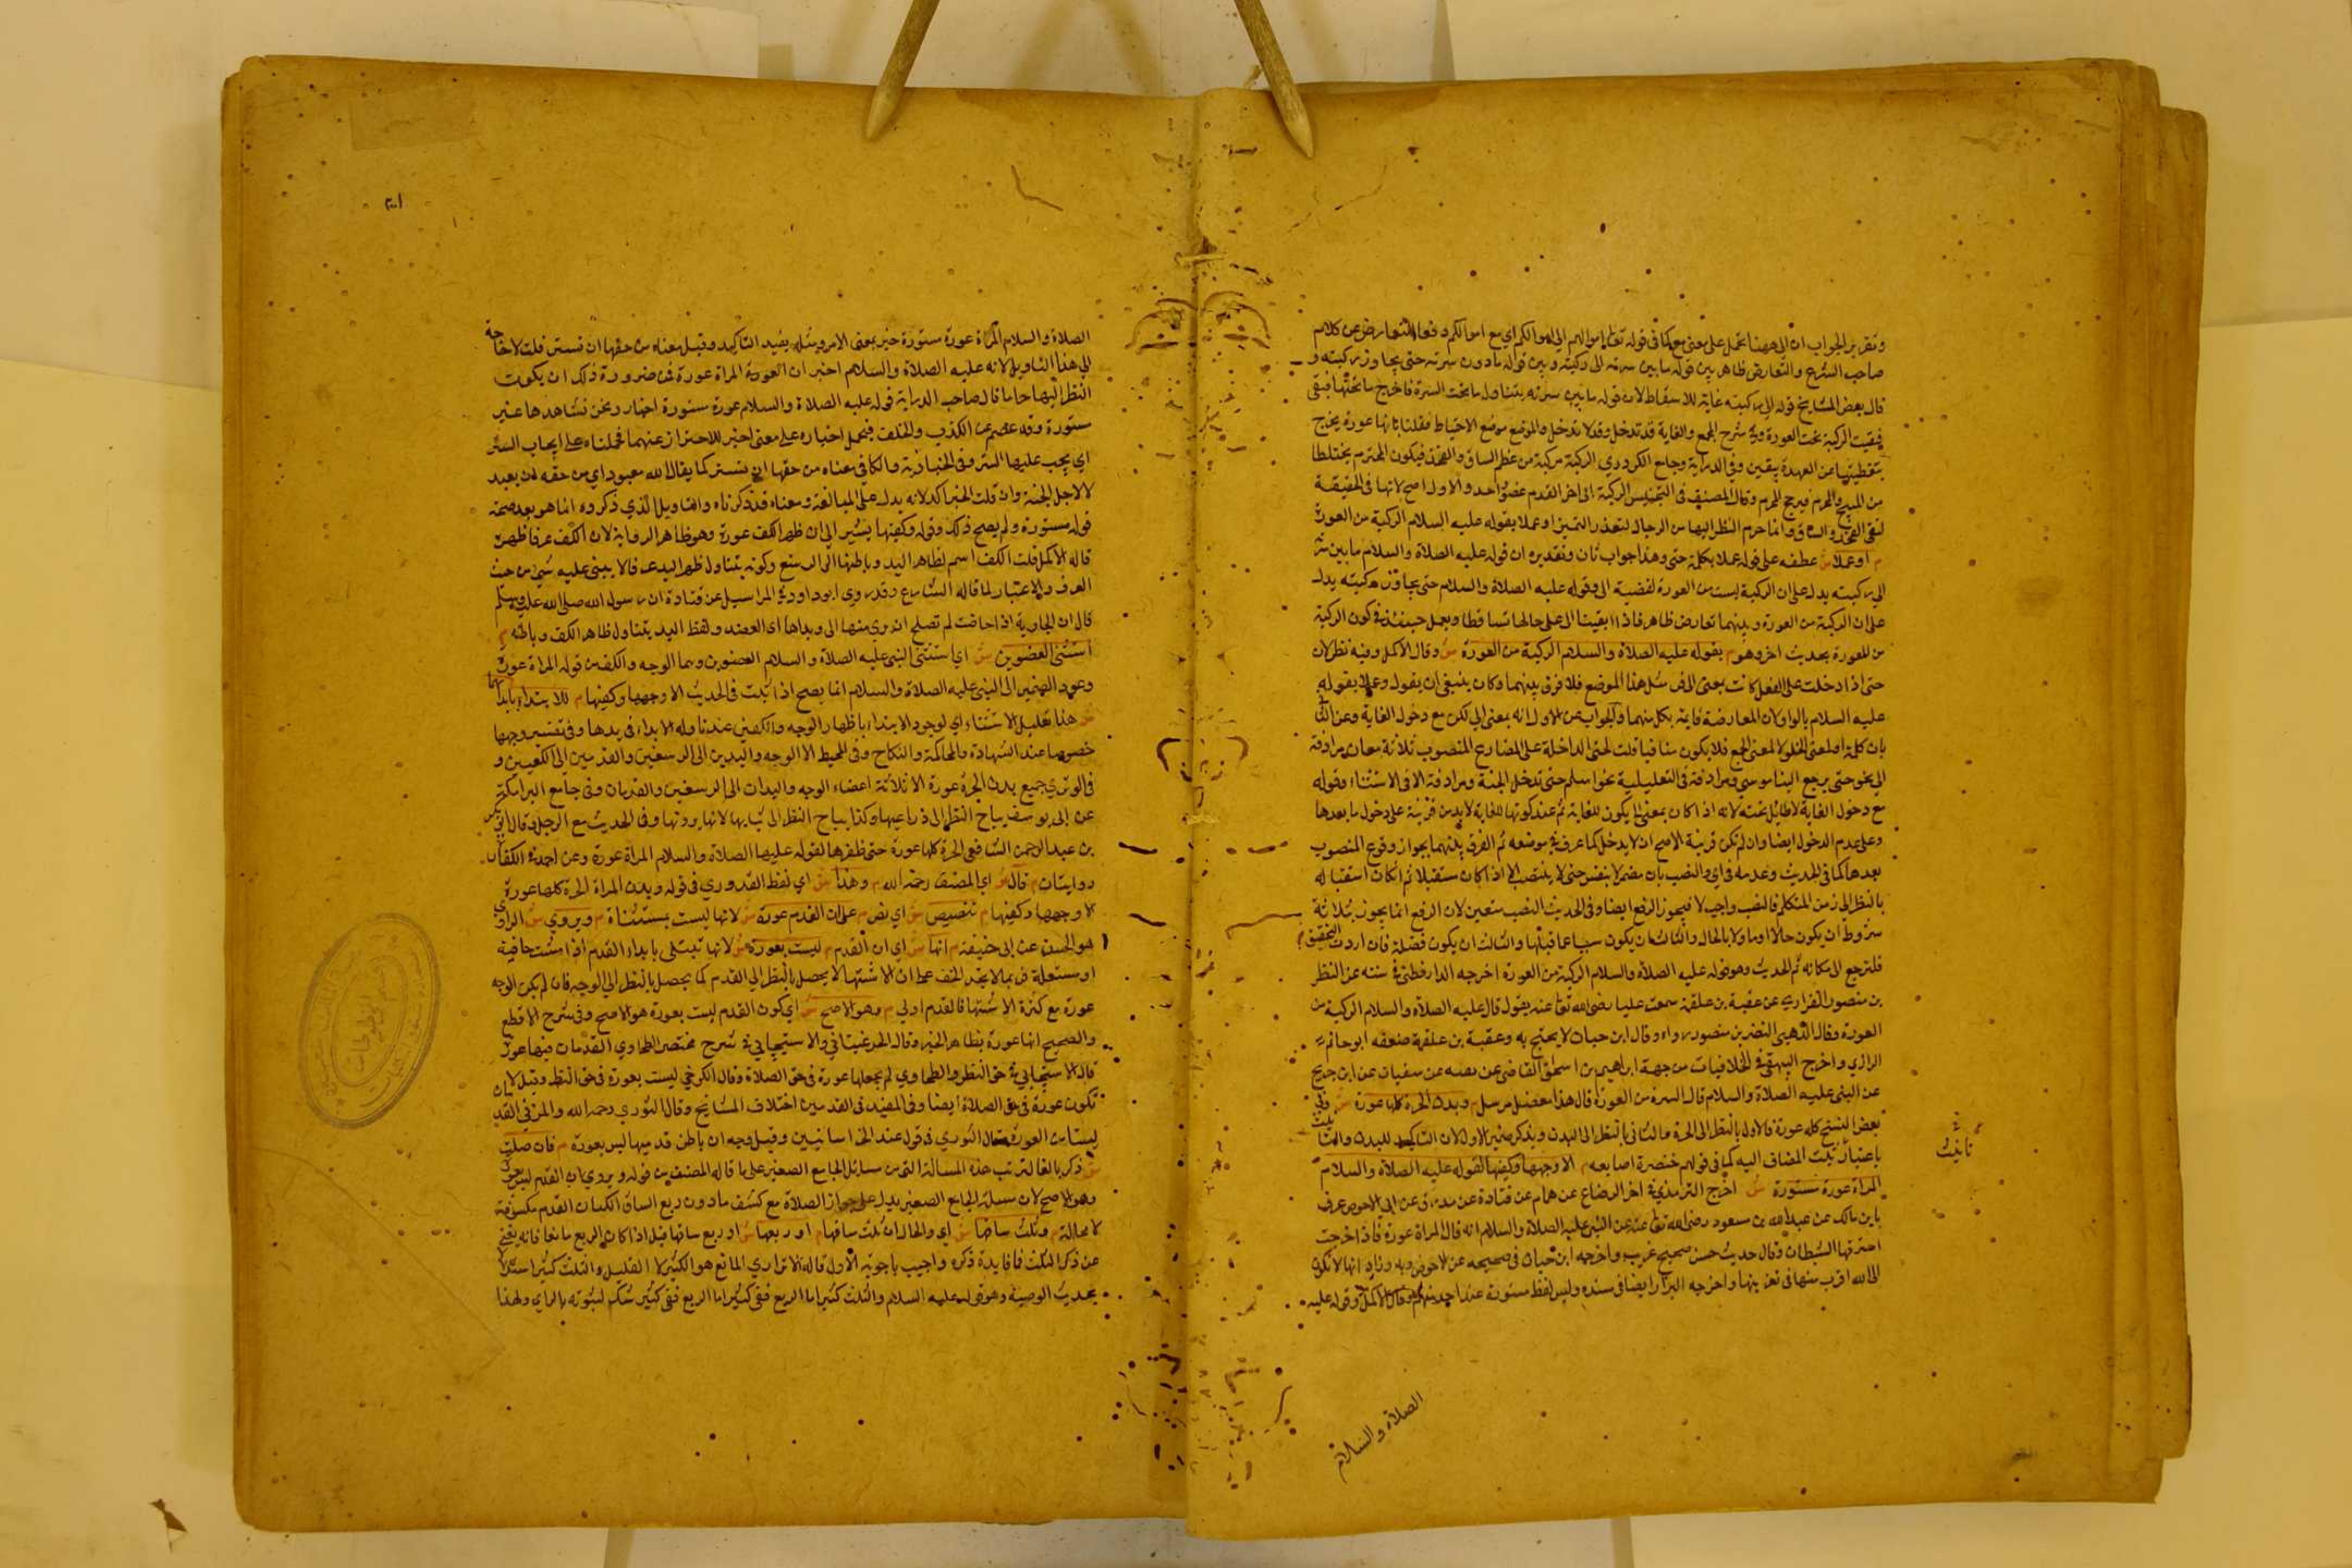 وتقرير الجواب ان الى ههنا تحمل على معنى مع كما في قوله تعالى اموالهم الى اموالكم اي مع اموالكم دفعا للتعارض عن كلام
صاحب الشرع والتعارض ظاهر بين قوله ما بين سرته الى ركبته وبين قوله ما دون سرته حتى يجاوز ركبتيه و
قال بعض المشايخ قوله الى ركبته غاية للاسقاط لان قوله ما بين سرته يتناول ما تحت السرة فاخرج ما تحتها فبقى
فبقيت الركبة تحت العورة وفي شرح المجمع والغاية قد تدخل وقد لا تدخل والموضع موضع الاحتياط فقلنا بانها عورة يخرج
بتغطيتها عن العهدة بيقين وفي الدراية وجامع الكردري الركبة مركبة من عظم الساق والفخذ فيكون المحرم مختلطا
من المبيح والمحرم فيرجح المحرم وقال المصنف في التجنيس الركبة الى اخر القدم عضو واحد والاول اصح لانها في الحقيقة
ملتقى الفخذ والساق وانما حرم النظر اليها من الرجال لتعذر التميز او عملا بقوله عليه السلام الركبة من العورة
م او عملا ش عطفه على قوله عملا بكلمة حتى وهذا جواب ثان وتقديره ان قوله عليه الصلاة والسلام ما بين سرته
الى ركبته يدل على ان الركبة ليست من العورة لقضية الى وقوله عليه الصلاة والسلام حتى يجاوز ركبتيه يدل
على ان الركبة من العورة وبينهما تعارض ظاهر فاذا بقيتا الى على حالها تساقطا ويعمل حينئذ في كون الركبة
من العورة بحديث اخر وهو م بقوله عليه الصلاة والسلام الركبة من العورة ش وقال الاكمل وفيه نظر لان
حتى اذا دخلت على الفعل كانت بمعنى الى في مثل هذا الموضع فلا فرق بينهما وكان ينبغي ان يقول وعملا بقوله
عليه السلام بالواو لان المعارضة قايمة بكل منهما والجواب عن الاول انه بمعنى الى لكن مع دخول الغاية وعن الثاني
بان كلمة او لمعنى الخلو لا لمعنى الجمع فلا يكون منافيا قلت لحتى الداخلة على المضارع المنصوب ثلاثة معان مرادفة
الى نحو حتى يرجع الينا موسى ومرادفة في التعليلية نحو اسلم حتى تدخل الجنة ومرادفة الا في الاستثناء وقوله
مع دخول الغاية لا طائل تحته لانه اذا كان بمعنى الى يكون للغاية ثم عند كونها للغاية لا بد من قرينة على دخول ما بعدها
وعلى عدم الدخول ايضا وان لم تكن قرينة الاصح ان لا يدخل كما عرف في موضعه ثم الفرق بينهما بجواز وقوع المنصوب
بعدها كما في الحديث وعدمه في اي والنصب بان مضمر لا بنفس حتى لا ينتصب الا اذا كان مستقبلا ثم ان كان استقباله
بالنظر الى زمن المتكلم فالنصب واجب لا فيجوز الرفع ايضا وفي الحديث النصب متعين لان الرفع انما يجوز بثلاثة
شروط ان يكون حالا او مؤولا بالحال والثاني ان يكون سببا عما قبلها والثالث ان يكون فضلة فان اردت التحقيق
فلترجع الى مكانه ثم الحديث وهو قوله عليه الصلاة والسلام الركبة من العورة اخرجه الدارقطني في سننه عن النضر
بن منصور الفزاري عن عقبة بن علقمة سمعت عليا رضي الله تعالى عنه يقول قال عليه الصلاة والسلام الركبة من
العورة وقال الذهبي النضر بن منصور واه وقال ابن حبان لا يحتج به وعقبة بن علقمة ضعفه ابو حاتم
الرازي واخرج البيهقي في الخلافيات من جهة ابراهيم بن اسحق القاضي عن قبيصة عن سفيان عن ابن جريج
عن النبي عليه الصلاة والسلام قال السرة من العورة قال هذا معضل مرسل م وبدن الحرة كلها عورة ش وفي
بعض النسخ كله عورة فالاول بالنظر الى الحرة والثاني بالنظر الى البدن وتذكير ضمير الاول لان التاكيد للبدن والتانيث
باعتبار تانيث المضاف اليه كما في قولهم خنصرة اصابعه م الا وجهها وكفيها لقوله عليه الصلاة والسلام
المراة عورة مستورة ش اخرج الترمذي في اخر الرضاع عن همام عن قتادة عن مورق عن ابي الاحوص عوف
بن مالك عن عبد الله بن مسعود رضي الله تعالى عنه عن النبي عليه الصلاة والسلام انه قال المراة عورة فاذا خرجت
استشرفها الشيطان وقال حديث حسن صحيح غريب واخرجه ابن حبان في صحيحه عن الاحوص به وزاد انها لا تكون
الى الله اقرب منها في قعر بيتها واخرجه البزار ايضا في مسنده وليس لفظ مستورة عند احد منهم وقال الاكمل وقوله عليه
تانيث
الصلاة والسلام
الصلاة والسلام المراة عورة مستورة خبر بمعنى الامر ومثله يفيد التاكيد وقيل معناه من حقها ان تستتر قلت لا حاجة
الى هذا التاويل لانه عليه الصلاة والسلام اخبر ان العورة المراة عورة فمن ضرورة ذلك ان يكون
النظر اليها حراما قال صاحب الدراية قوله عليه الصلاة والسلام عورة مستورة اخبار ونحن نشاهدها غير
مستورة وقد عصم عن الكذب والخلف فيحمل اخباره على معنى اخر للاحتراز عنهما فحملناه على ايجاب الستر
اي يجب عليها الستر وفي الخبازية والكافي معناه من حقها ان تستتر كما يقال الله معبود اي من حقه ان يعبد
قوله مستورة ولم يصح ذلك وقوله وكفيها يشير الى ان ظهر الكف عورة وهو ظاهر الرواية لان الكف عرفا ظهره
قاله الاكمل قلت الكف اسم لظاهر اليد وباطنها الى الرسغ وكونه يتناول ظهر اليد عرفا لا يبتنى عليه شي من حيث
العرف والاعتبار لما قاله الشارع وقد روى ابو داود في المراسيل عن قتادة ان رسول الله صلى الله عليه وسلم
قال ان الجارية اذا حاضت لم تصلح ان يرى منها الا وجهها ويداها الى المفصل ولفظ اليد يتناول ظاهر الكف وباطنه م
استثنى العضوين ش اي استثنى النبي عليه الصلاة والسلام العضوين وهما الوجه والكفين قوله المراة عورة
وعود الضمير الى النبي عليه الصلاة والسلام انما يصح اذا ثبت في الحديث الا وجهها وكفيها م للابتلاء بابدائهما
ش هذا تعليل الاستثناء اي لوجود الابتلاء باظهار الوجه والكفين
خصوصا عند الشهادة والمحاكمة والنكاح وفي المحيط الا الوجه واليدين الى الرسغين والقدمين الى الكعبين و
في الوبري جميع بدن الحرة عورة الا ثلاثة اعضاء الوجه واليدان الى الرسغين والقدمان وفي جامع البرامكة
عن ابي يوسف يباح النظر الى ذراعيها وكذا يباح النظر الى ثيابها
بن عبد الرحمن الشافعي الحرة كلها عورة حتى ظفرها لقوله عليه الصلاة والسلام المراة عورة وعن احمد في الكفان
روايتان م قال ش اي المصنف رحمه الله م وهذا ش اي لفظ القدوري في قوله وبدن المراة الحرة كلها عورة
الا وجهها وكفيها م تنصيص ش اي نص م على ان القدم عورة ش لانها ليست بمستثناة م ويروى ش الراوي
هو الحسن عن ابي حنيفة م انها ش اي ان القدم م ليست بعورة ش لانها تبتلى بابداء القدم اذا مشت حافية
او متنعلة فربما لا تجد الخف على ان الاشتهاء لا يحصل بالنظر الى القدم كما يحصل بالنظر الى الوجه فان لم يكن الوجه
عورة مع كثرة الاشتهاء فالقدم اولى م وهو الاصح ش اي كون القدم ليست بعورة هو الاصح وفي شرح الاقطع
والصحيح انها عورة بظاهر الخبر وقال المرغيناني والاسبيجابي في شرح مختصر الطحاوي القدمان فيها عورة
قال الاسبيجابي في حق النظر والطحاوي لم يجعلها عورة في حق الصلاة وقال الكرخي ليست بعورة في حق النظر وقيل لا
تكون عورة في حق الصلاة ايضا وفي المفيد في القدمين اختلاف المشايخ وقال الثوري رحمه الله والمزني القدمان
ليستا من العورة وقيل وجه ان باطن قدميها ليس بعورة م فان صلت
ش ذكر بالفاء لترتيب هذه المسالة التي من مسائل الجامع الصغير على ما قاله المصنف من قوله ويروى ان القدم ليس بعورة
وهو الاصح لان مسئلة الجامع الصغير يدل على جواز الصلاة مع كشف ما دون ربع الساق
لا محالة م وثلث ساقها ش اي والحال ان ثلث ساقها م او ربعها ش او ربع ساقها قيل اذا كان الربع مانعا فانه يغني
عن ذكر الثلث فما فايدة ذكره واجيب باجوبة الاول قاله الاترازي المانع هو الكثير لا القليل والثلث كثير استدلالا
بحديث الوصية وهو قوله عليه السلام والثلث كثير اما الربع ففي كثير شك لثبوته بالراي ولهذا